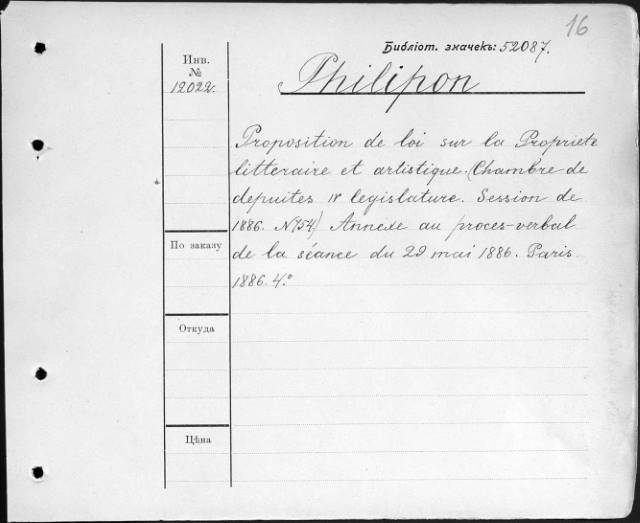 16
Библіот. значекъ: 52087.
Инв.
№
12022.
Philipon
Proposition de loi sur la Propriete
litteraire et artistique. (Chambre de
depuites IV legislature. Session de
1886. N754) Annexe au proces-verbal
de la séance du 29 mai 1886. Paris
1886. 4.°
По заказу
Откуда
Цѣна